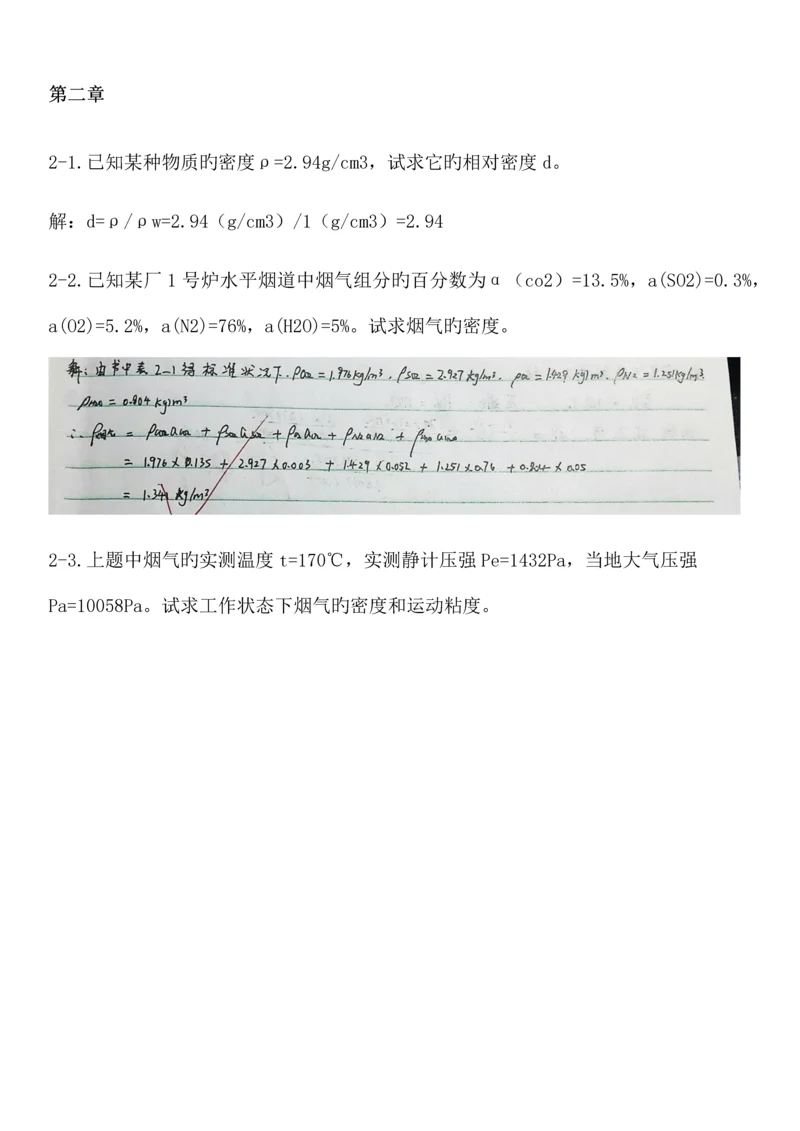 第二章
2-1.已知某种物质旳密度ρ=2.94g/cm3，试求它旳相对密度 d。
解：d=ρ/ρw=2.94（g/cm3）/1（g/cm3）=2.94
2-2.已知某厂 1 号炉水平烟道中烟气组分旳百分数为α（co2）=13.5%，a(SO2)=0.3%，
a(O2)=5.2%，a(N2)=76%，a(H2O)=5%。试求烟气旳密度。
解：由书中表2-1得标准状况下，ρCO2=1.976kg/m³，ρSO2=2.927kg/m³，ρO2=1.429kg/m³，ρN2=1.251kg/m³
ρH2O=0.804kg/m³
∴ρ烟气=ρCO2αCO2+ρSO2αSO2+ρO2αO2+ρN2αN2+ρH2OαH2O
=1.976×0.135+2.927×0.003+1.429×0.052+1.251×0.76+0.804×0.05
=1.341kg/m³
2-3.上题中烟气旳实测温度 t=170℃，实测静计压强 Pe=1432Pa，当地大气压强
Pa=10058Pa。试求工作状态下烟气旳密度和运动粘度。